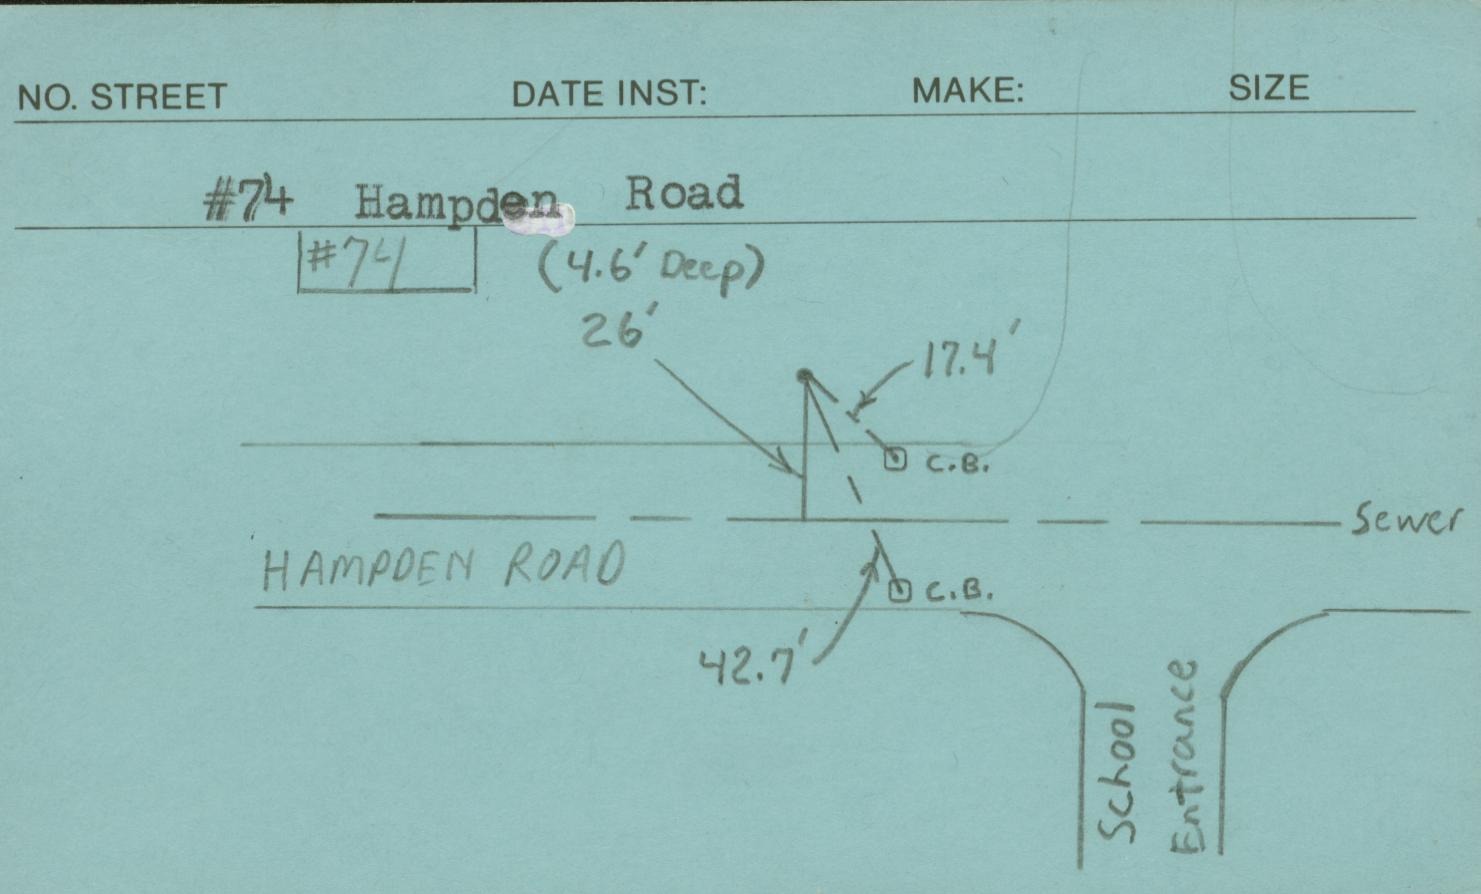 NO. STREET DATE INST: MAKE: SIZE
#74 Hampden Road
#74 (4.6' Deep)
26'
17.4'
C.B.
Sewer
HAMPDEN ROAD
C.B.
42.7'
School
Entrance